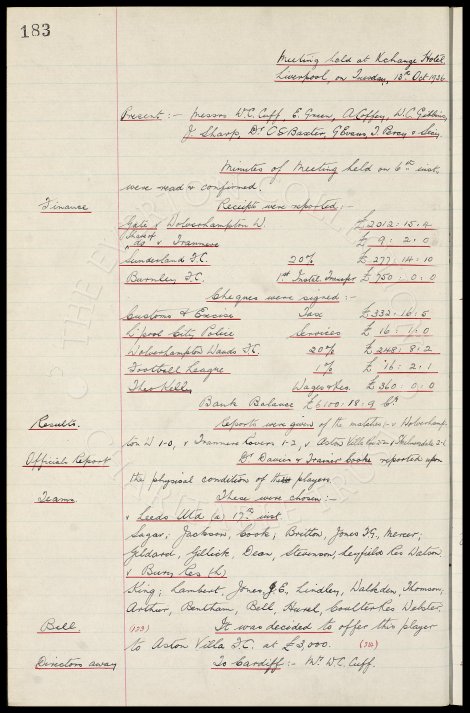 183
Meeting held at Xchange Hotel
Liverpool, on Tuesday, 13th Oct 1936
Present :- Messrs W.C. Cuff, E. Green, A Coffey, W.C. Gibbins,
J Sharp, Dr C S Baxter, G Evans, J. Percy & Secy
Minutes of Meeting held on 6th inst.
were read & confirmed.
Finance Receipts were reported :-
Gate v Wolverhampton W. £2012 : 15 . 4
Share of do v Tranmere £ 9 : 2 : 0
Sunderland F.C. 20% £ 277 : 14 : 10
Burnley F.C. 1st Instal. Transfer £ 750 : 0 : 0
Cheques were signed :-
Customs & Excise Tax £ 332 : 16 : 5
L'pool City Police Services £ 16 : 1 : 0
Wolverhampton Wands F.C. 20% £ 248 : 8 : 2
Football League 1% £ 16 : 2 : 1
Theo Kelly Wages &c £ 360 : 0 : 0
Bank Balance £6109 : 18 : 9 Cr
Results. Reports were given of the matches :- v Wolverhamp-
ton W 1-0, v Tranmere Rovers 1-2, v Aston Villa Res
Officials Report Dr Davies & Trainer Cooke reported upon
the physical condition of the players.
Teams These were chosen :-
v Leeds Utd (a) 17th inst.
Sagar; Jackson, Cook; Britton, Jones T.G. Mercer;
Geldard, Gillick, Dean, Stevenson, Leyfield Res Watson.
v Bury Res (h)
King; Lambert, Jones J.E. Lindley, Walkden, Thomson;
Arthur, Bentham, Bell, Hurel, Coulter Res Webster.
Bell (173) It was decided to offer this player
to Aston Villa F.C. at £3,000.
Directors away To Cardiff :- Mr W.C. Cuff.